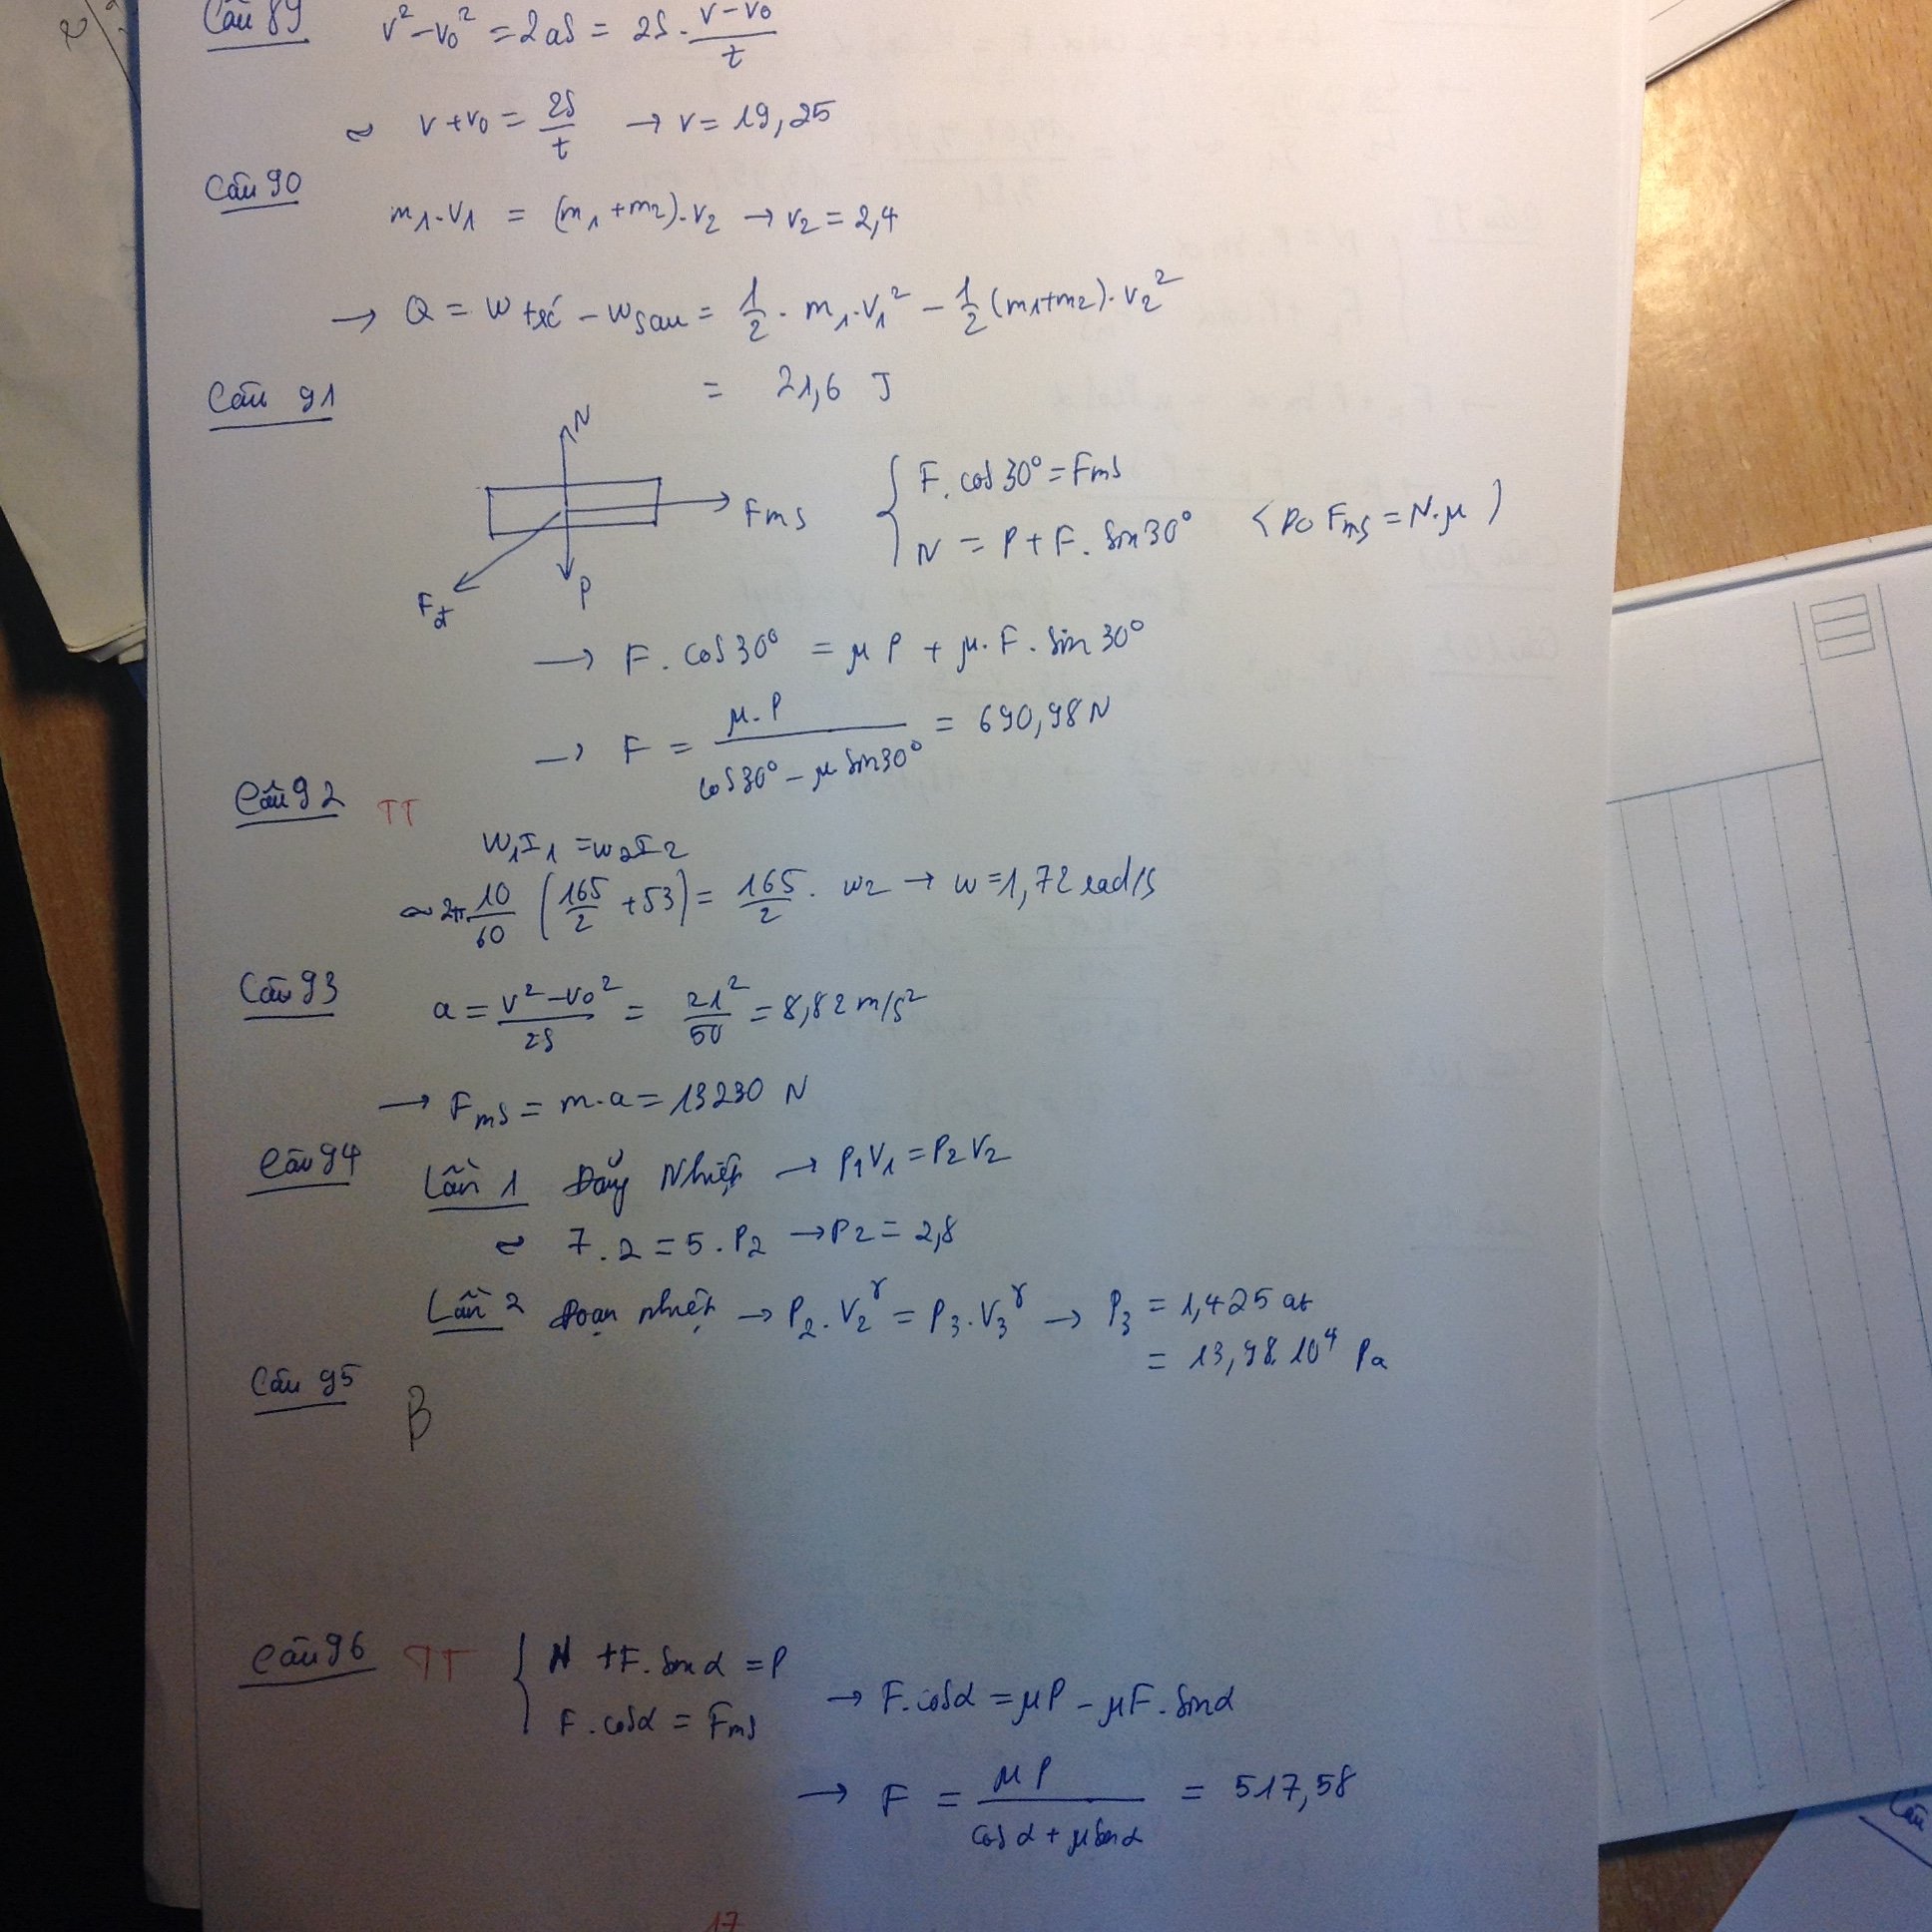 Câu 89 v² - v₀² = 2aS = 2S · (v - v₀)/t
~ v + v₀ = 2S/t → v = 19,25
Câu 90
m₁·v₁ = (m₁ + m₂)·v₂ → v₂ = 2,4
→ Q = W trc - W sau = 1/2 · m₁·v₁² - 1/2 (m₁+m₂)·v₂²
= 21,6 J
Câu 91
N
Fms
P
Fđ
{ F. cos30° = Fms
N = P + F. Sin30° (Do Fms = N.μ)
→ F. cos30° = μP + μ.F. Sin30°
→ F = μ.P / (cos30° - μ Sin30°) = 690,98 N
Câu 92 TT
W₁I₁ = W₂I₂
~ 2π 10/60 (165/2 + 53) = 165/2 . W₂ → W = 1,72 rad/s
Câu 93 a = (v² - v₀²)/2S = 21²/50 = 8,82 m/s²
→ Fms = m·a = 13230 N
Câu 94 Lần 1 Đẳng Nhiệt → P₁V₁ = P₂V₂
~ 7.2 = 5.P₂ → P₂ = 2,8
Lần 2 Đoạn nhiệt → P₂.V₂^γ = P₃.V₃^γ → P₃ = 1,425 at
= 13,98.10⁴ Pa
Câu 95 B
Câu 96 TT { N + F. Sinα = P
F. cosα = Fms
→ F. cosα = μP - μF. Sinα
→ F = μP / (cosα + μSinα) = 517,58
17